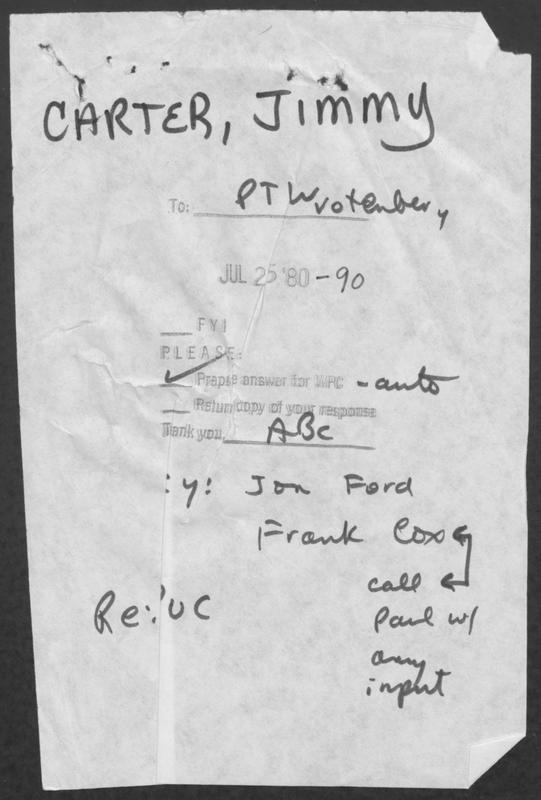 CARTER, Jimmy
To: PT Wrotenbery
JUL 25 '80 - 90
FYI
PLEASE:
✓ Prepare answer for WPC - auto
Return copy of your response
Thank you, ABC
: y: Jon Ford
Frank Cox
call
Paul w/
any
input
Re: UC